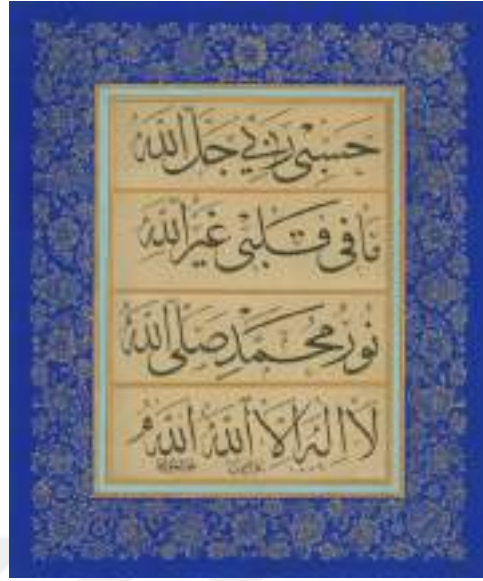 حَسْبِي رَبِّي جَلَّ اللّٰهُ
مَا فِي قَلْبِي غَيْرُ اللّٰهِ
نُورُ مُحَمَّدْ صَلَّى اللّٰهُ
لَا اِلٰهَ اِلَّا اللّٰهُ اللّٰهُ